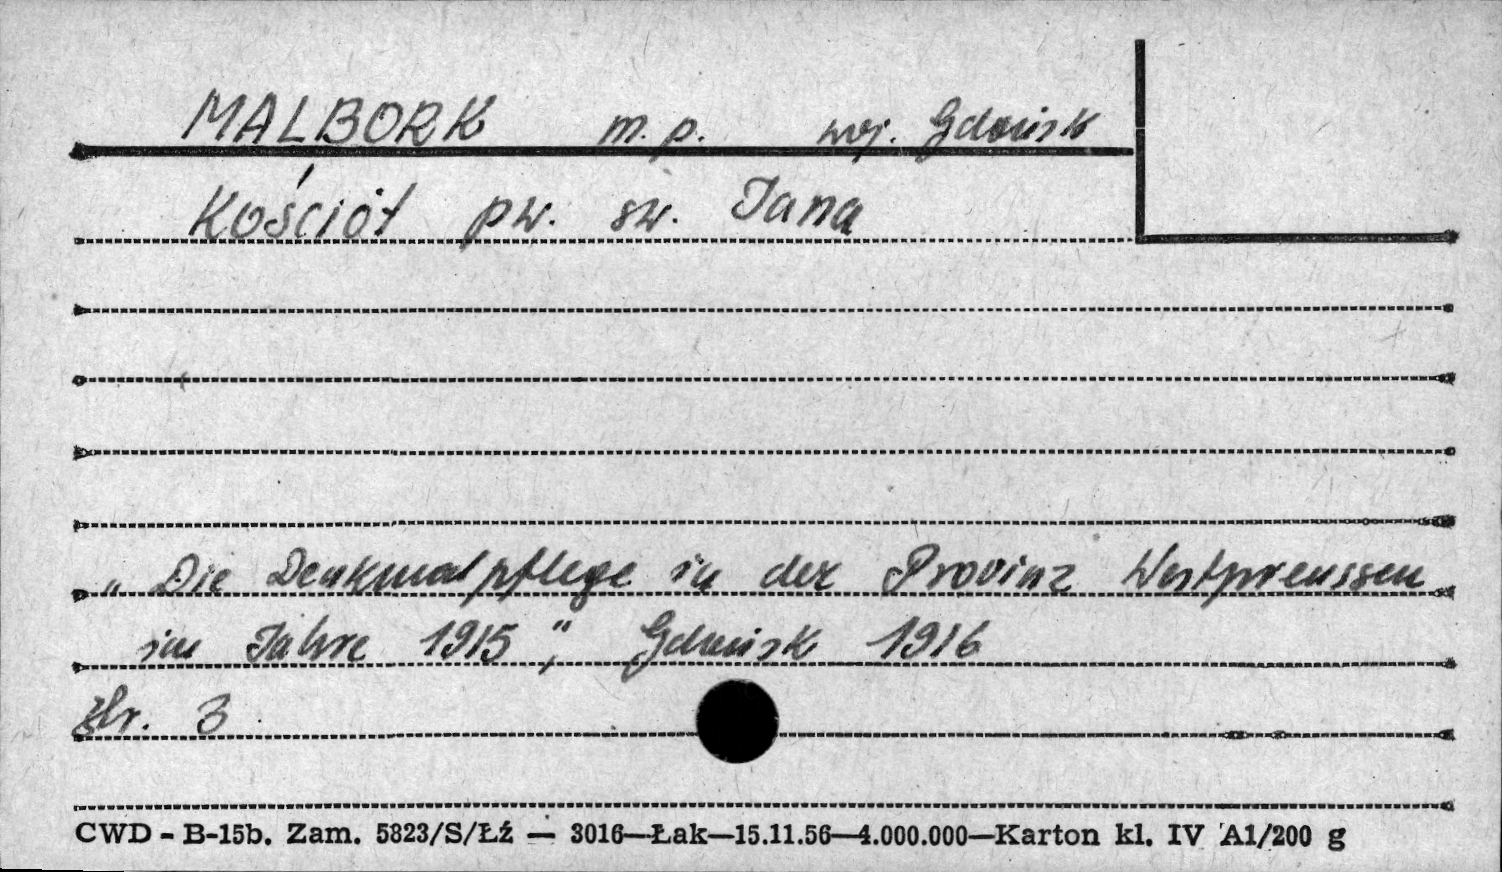 MALBORK m. p. woj. Gdańsk
Kościół pw. św. Jana
„Die Denkmalpflege in der Provinz Westpreussen
im Jahre 1915", Gdańsk 1916
str. 3
CWD - B-15b. Zam. 5823/S/Łź — 3016—Łak—15.11.56—4.000.000—Karton kl. IV A1/200 g